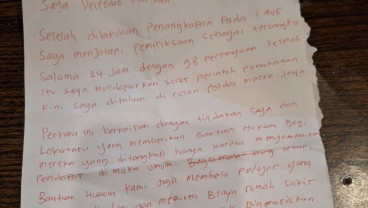 Saya
Setelah dilakukan penangkapan Pada 1
Saya menjalani pemeriksaan sebagai tersangka
Selama 24 Jam dengan 98 Pertanyaan Setelah
itu saya mendapatkan surat perintah penahanan
Kini saya ditahan di rutan Polda Metro Jaya
Perkara ini berkaitan dengan tindakan saya dan
Lokataru yang memberikan Bantuan Hukum Bagi
mereka yang ditangkap hanya karena menyampaikan
Pendapat di muka umum
Bantuan Hukum kami juga membela pelajar yang
dan Biaya rumah sakit